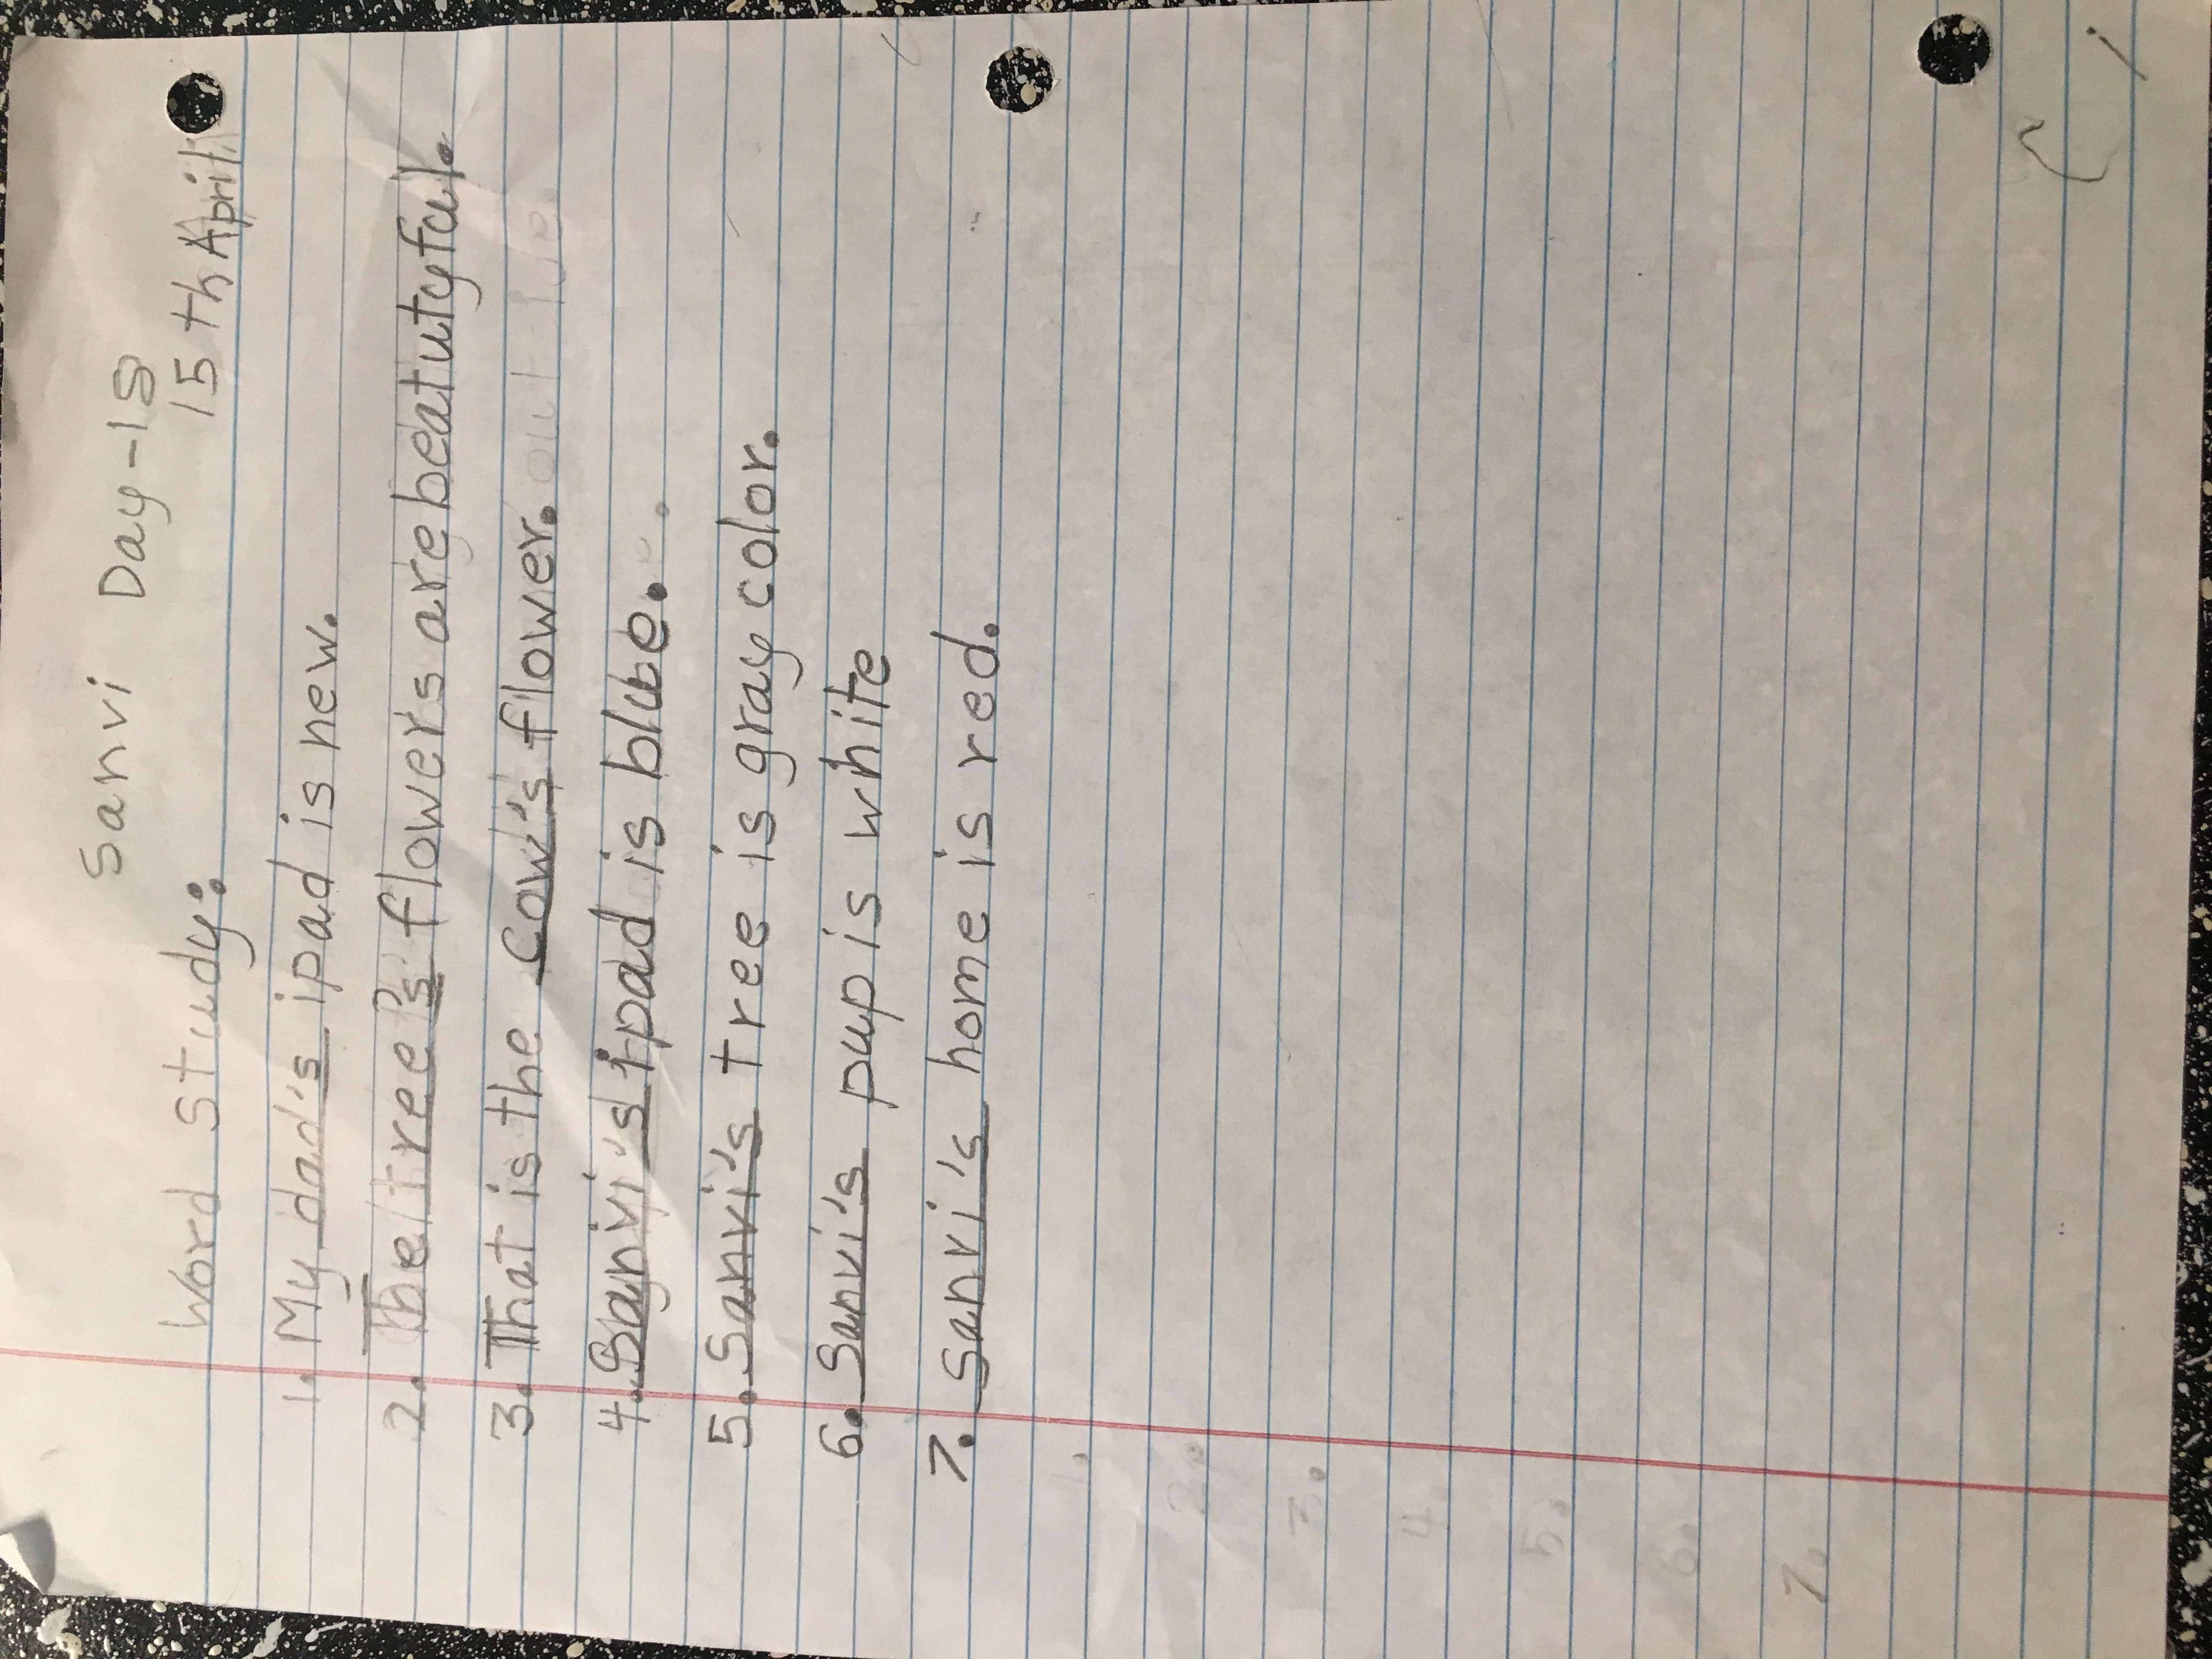 Sanvi Day-18
Word study:
15th April
1. My dad's ipad is new.
2. The tree's flowers are beatutyful.
3. That is the cow's flower.
4. Sanvi's ipad is blue.
5. Sanvi's tree is gray color.
6. Sanvi's pup is white
7. Sanvi's home is red.
1.
2.
3.
4.
5.
6.
7.